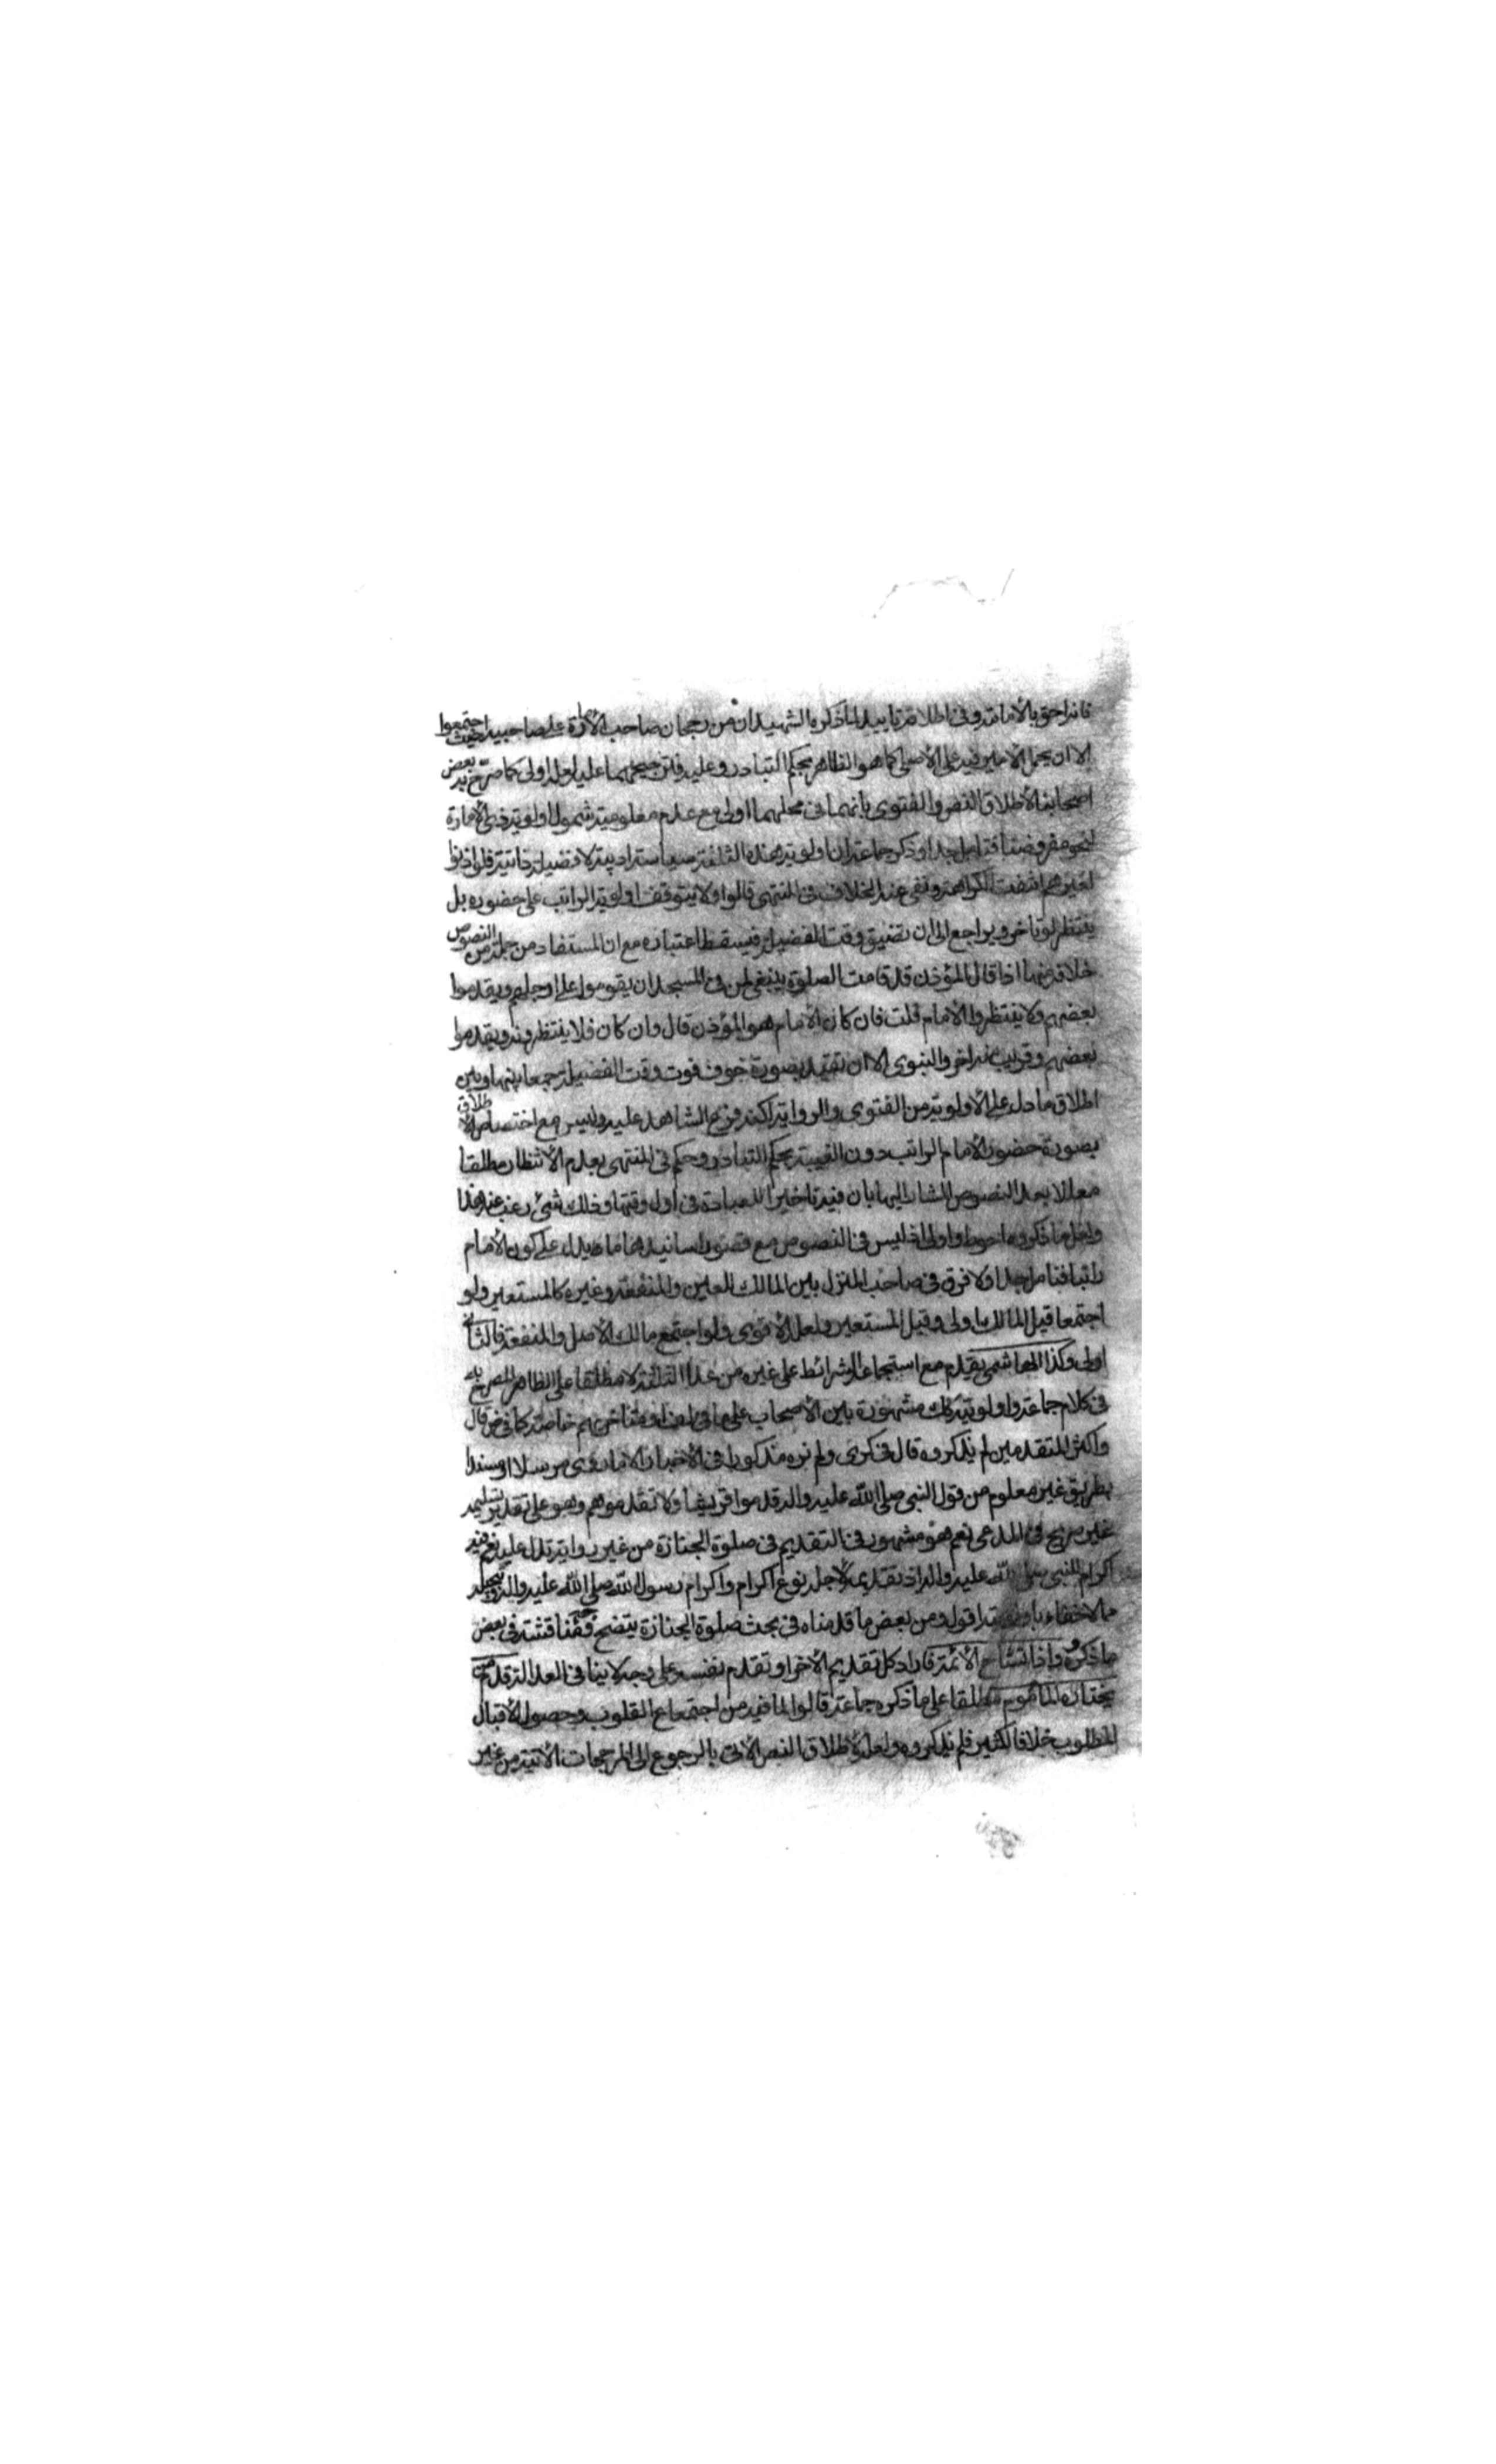 فانه احق بالأمامة وفى اطلاقه تاييد لما ذكره الشهيدان من رجحان صاحب الأمارة على صاحبيه حيث اجتمعوا
الا ان يحمل الامير فيه على الأصلى كما هو الظاهر بحكم التبادر وعليه فترجيحهما عليه لعله اولى كما صرح به بعض
اصحابنا لأطلاق النص والفتوى بانهما فى محلهما اولى مع عدم معلومية شمول اولوية ذى الأمارة
لنحو مفروضنا فتامل جدا وذكر جماعة ان اولوية هذه الثلثة سياسة ادبية لا فضيلة ذاتية فلو اذنوا
لغيرهم انتفت الكراهة ونفى عنه الخلاف فى المنتهى قالوا ولا يتوقف اولوية الراتب على حضوره بل
ينتظر لو تاخر ويراجع الى ان تضيق وقت الفضيلة فيسقط اعتباره مع ان المستفاد من جملة من النصوص
خلافه منها اذا قال المؤذن قد قامت الصلوة ينبغى لمن فى المسجد ان يقوموا على ارجلهم ويقدموا
بعضهم ولا ينتظروا الأمام قلت فان كان الأمام هو المؤذن قال وان كان فلا ينتظرونه ويقدموا
بعضهم وقريب منه اخر والنبوى الا ان تقيد بصورة خوف فوت وقت الفضيلة جمعا بينها وبين
اطلاق ما دل على الأولوية من الفتوى والرواية لكنه فرع الشاهد عليه وليس مع اختصاص الأطلاق
بصورة حضور الأمام الراتب دون الغيبة بحكم التبادر وحكم فى المنتهى بعدم الأنتظار مطلقا
معللا بعد النصوص المشار اليها بان فيه تاخيرا للعبادة فى اول وقتها وذلك شئ رغب عنه هذا
ولعل ما ذكروه احوط واولى اذ ليس فى النصوص مع قصور اسانيدها ما يدل على كون الأمام
راتبا فتامل جدا ولا فرق فى صاحب المنزل بين المالك للعين والمنفعة وغيره كالمستعير ولو
اجتمعا قيل المالك اولى وقيل المستعير ولعله الأقوى ولو اجتمع مالك الأصل والمنفعة فالثانى
اولى وكذا الهاشمى يقدم مع استجماعه الشرائط على غيره من عدا الثلثة لا مطلقا على الظاهر المصرح به
فى كلام جماعة واولويته كك مشهورة بين الأصحاب على ما فى او متاخريهم خاصة كما فى ض قال
واكثر المتقدمين لم يذكروه قال فى كرى ولم نره مذكورا فى الأخبار الا ما روى مرسلا او مسندا
بطريق غير معلوم من قول النبى صلى الله عليه واله قدموا قريشا ولا تقدموهم وهو على تقدير تسليمه
غير صريح فى المدعى نعم هو مشهور فى التقديم فى صلوة الجنازة من غير رواية تدل عليه نعم فيه
اكرام للنبى صلى الله عليه واله اذ تقديمه لأجله نوع اكرام واكرام رسول الله صلى الله عليه واله وتبجيله
مما لا خفاء باولويته اقول ومن بعض ما قدمناه فى بحث صلوة الجنازة يتضح وجه مناقشته فى بعض
ما ذكره واذا تشاح الأئمة فاراد كل تقديم الأخر او تقدم نفسه على وجه لا ينافى العدالة قدم من
يختاره المأموم مطلقا على ما ذكره جماعة قالوا لما فيه من اجتماع القلوب وحصول الأقبال
المطلوب خلافا لكثير فلم يذكروه ولعله لأطلاق النص الأتى بالرجوع الى المرجحات الأتية من غير